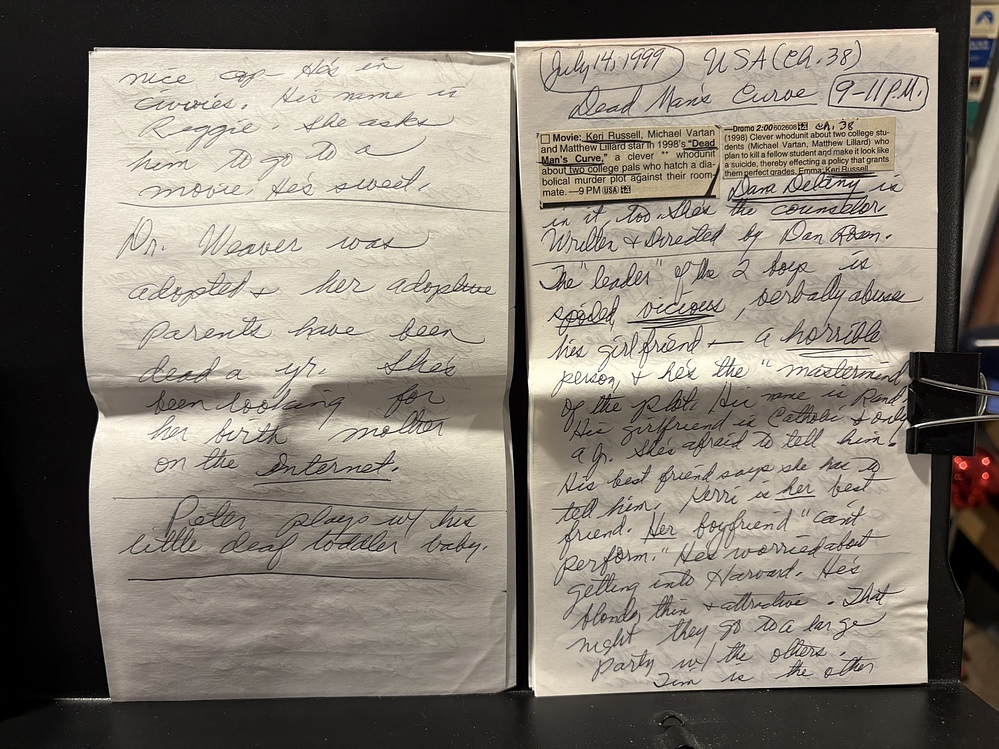 nice cop - He's in
civvies. His name is
Reggie. She asks
him to go to a
movie. He's sweet.
Dr. Weaver was
adopted & her adoptive
parents have been
dead a yr. She's
been looking for
her birth mother
on the Internet.
Peter plays w/ his
little deaf toddler baby.
July 14, 1999 USA (ch. 38)
Dead Man's Curve 9-11 P.M.
Movie: Keri Russell, Michael Vartan
and Matthew Lillard star in 1998's "Dead
Man's Curve," a clever whodunit
about two college pals who hatch a dia-
bolical murder plot against their room-
mate. —9 PM USA
—Drama 2:00 602608 ch. 38
(1998) Clever whodunit about two college stu-
dents (Michael Vartan, Matthew Lillard) who
plan to kill a fellow student and make it look like
a suicide, thereby effecting a policy that grants
them perfect grades. Emma: Keri Russell.
Dana Delany is
in it, too. She's the counselor.
Written & Directed by Dan Rosen.
The "leader" of the 2 boys is
spoiled, vicious, verbally abuses
his girlfriend — a horrible
person, & he's the "mastermind
of the plot. His name is Rand.
His girlfriend is Catholic & only
a jr. She's afraid to tell him.
His best friend says she has to
tell him. Kerri is her best
friend. Her boyfriend "can't
perform." He's worried about
getting into Harvard. He's
blonde, thin & attractive. That
night they go to a large
party w/ the others.
Tim is the other